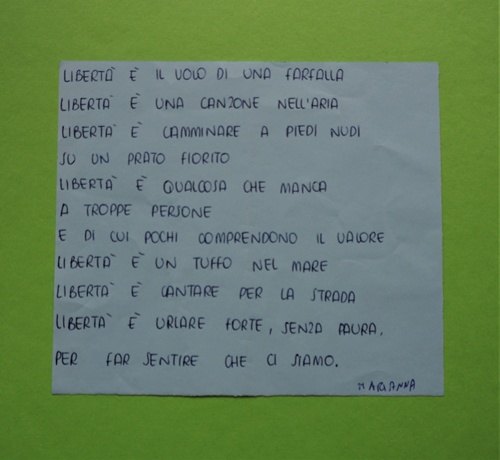 LIBERTÀ È IL VOLO DI UNA FARFALLA
LIBERTÀ È UNA CANZONE NELL'ARIA
LIBERTÀ È CAMMINARE A PIEDI NUDI
SU UN PRATO FIORITO
LIBERTÀ È QUALCOSA CHE MANCA
A TROPPE PERSONE
E DI CUI POCHI COMPRENDONO IL VALORE
LIBERTÀ È UN TUFFO NEL MARE
LIBERTÀ È CANTARE PER LA STRADA
LIBERTÀ È URLARE FORTE, SENZA PAURA,
PER FAR SENTIRE CHE CI SIAMO.
MARIANNA